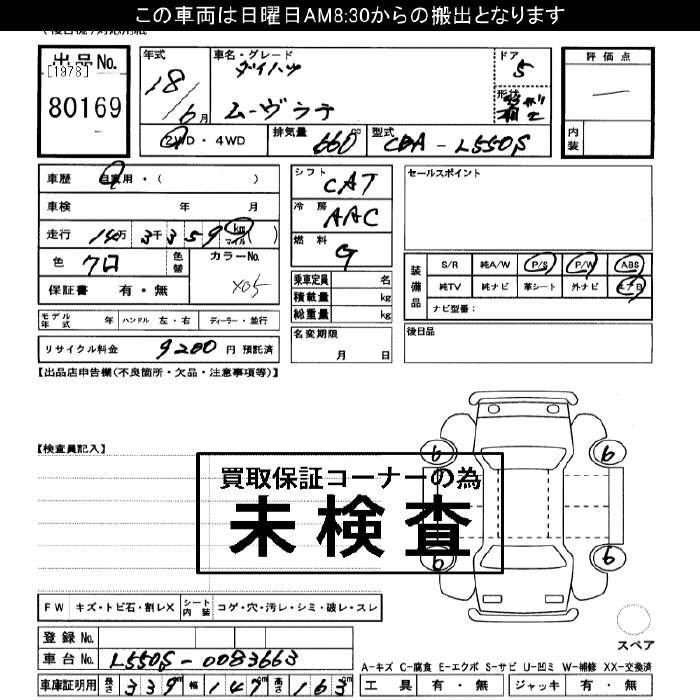 この車両は日曜日AM8:30からの搬出となります
出品No.
[1978]
80169
年式
18/6月
車名・グレード
ダイハツ
ムーヴラテ
ドア
5
形状
評価点
内装
2WD・4WD
排気量
660cc
型式
CBA-L550S
車歴
自家用・( )
車検 年 月
走行 14万3千359km マイル( )
色 クロ
色替
カラーNo.
X05
保証書 有・無
シフト
CAT
冷房
AAC
燃料
G
乗車定員 名
積載量 kg
総重量 kg
セールスポイント
装備品
S/R 純A/W P/S P/W ABS
純TV 純ナビ 革シート 外ナビ エアB
ナビ型番:
モデル年式 年 ハンドル 左・右 ディーラー・並行
リサイクル料金 9200円 預託済
名変期限
月 日
後日品
【出品店申告欄(不良箇所・欠品・注意事項等)】
【検査員記入】
6 6
6 6
買取保証コーナーの為
未検査
FW キズ・トビ石・割レX シート内装 コゲ・穴・汚レ・シミ・破レ・スレ
スペア
登録No.
車台No. L550S-0083663
A-キズ C-腐食 E-エクボ S-サビ U-凹ミ W-補修 XX-交換済
車庫証明用 長さ 339cm 幅 147cm 高さ 163cm
工具 有・無 ジャッキ 有・無